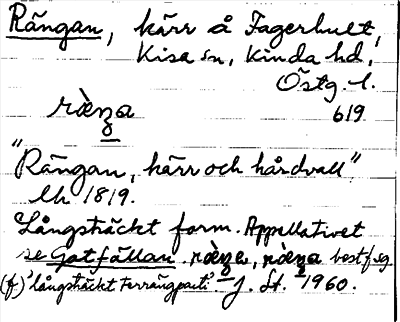 Rängan, kärr å Fagerhult,
Kisa sn, Kinda hd,
Östg. l.
619
"Rängan, kärr och hårdvall"
lh 1819.
Långsträckt form. Appellativet
se Gatfällan. best f sg
(f.) 'långsträckt terrängparti' J. St. 1960.